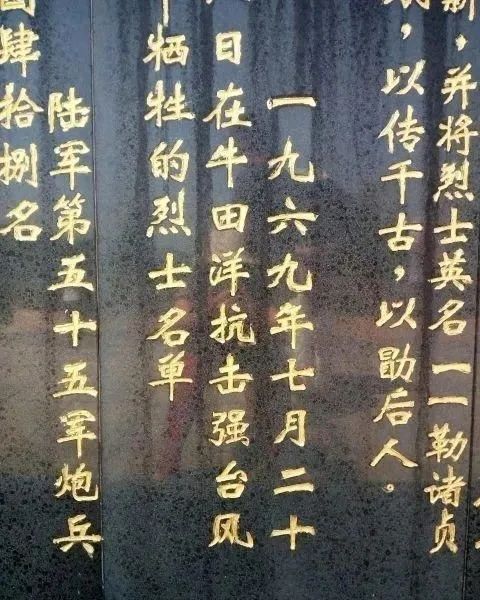 新，并将烈士英名一一勒诸贞
，以传千古，以勖后人。
一九六九年七月二十
日在牛田洋抗击强台风
牺牲的烈士名单
陆军第五十五军炮兵
肆拾捌名